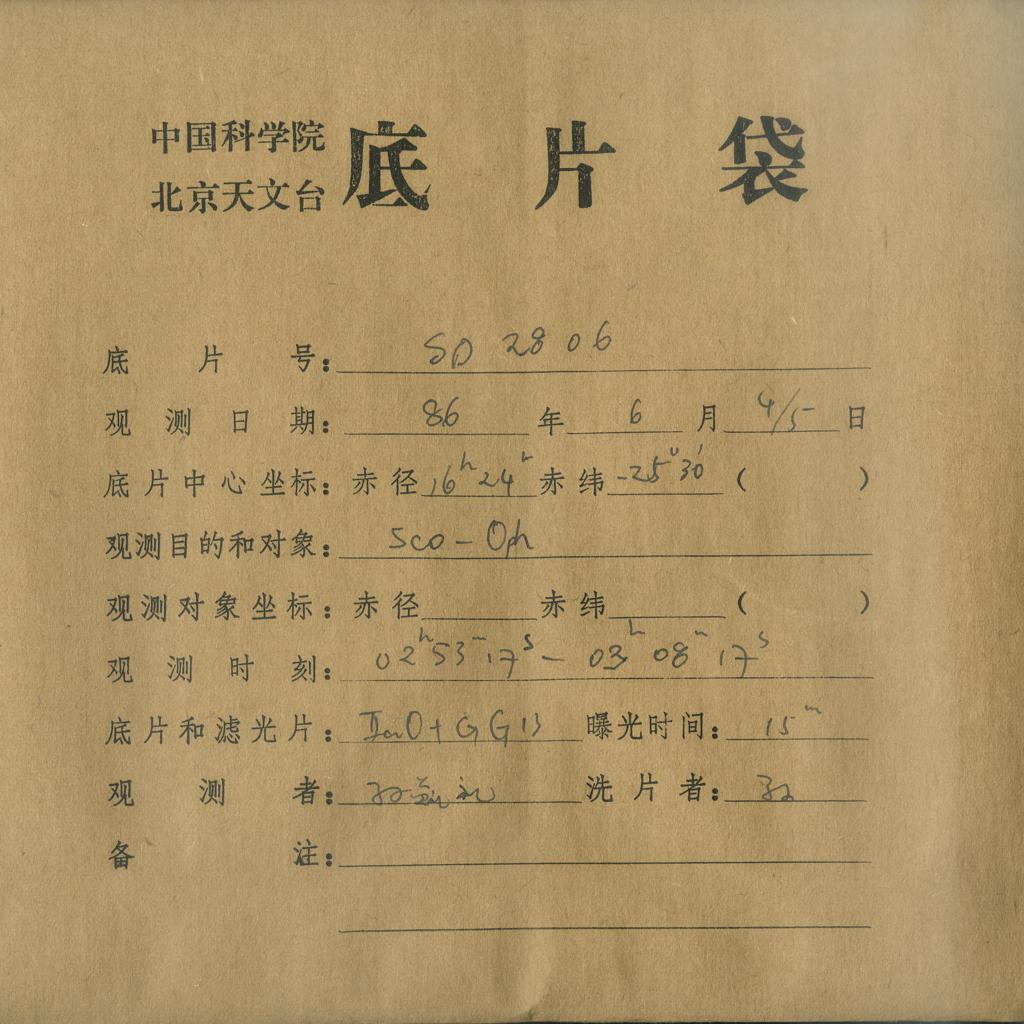 中国科学院
北京天文台
底片袋
底片号：SD 2806
观测日期：86年6月4/5日
底片中心坐标：赤径16ʰ24ᵐ赤纬-25°30′（ ）
观测目的和对象：Sco-Oph
观测对象坐标：赤径 赤纬 （ ）
观测时刻：02ʰ53ᵐ17ˢ-03ʰ08ᵐ17ˢ
底片和滤光片：IIaO+GG13 曝光时间：15ᵐ
观测者：孙 礼 洗片者：孙
备注：